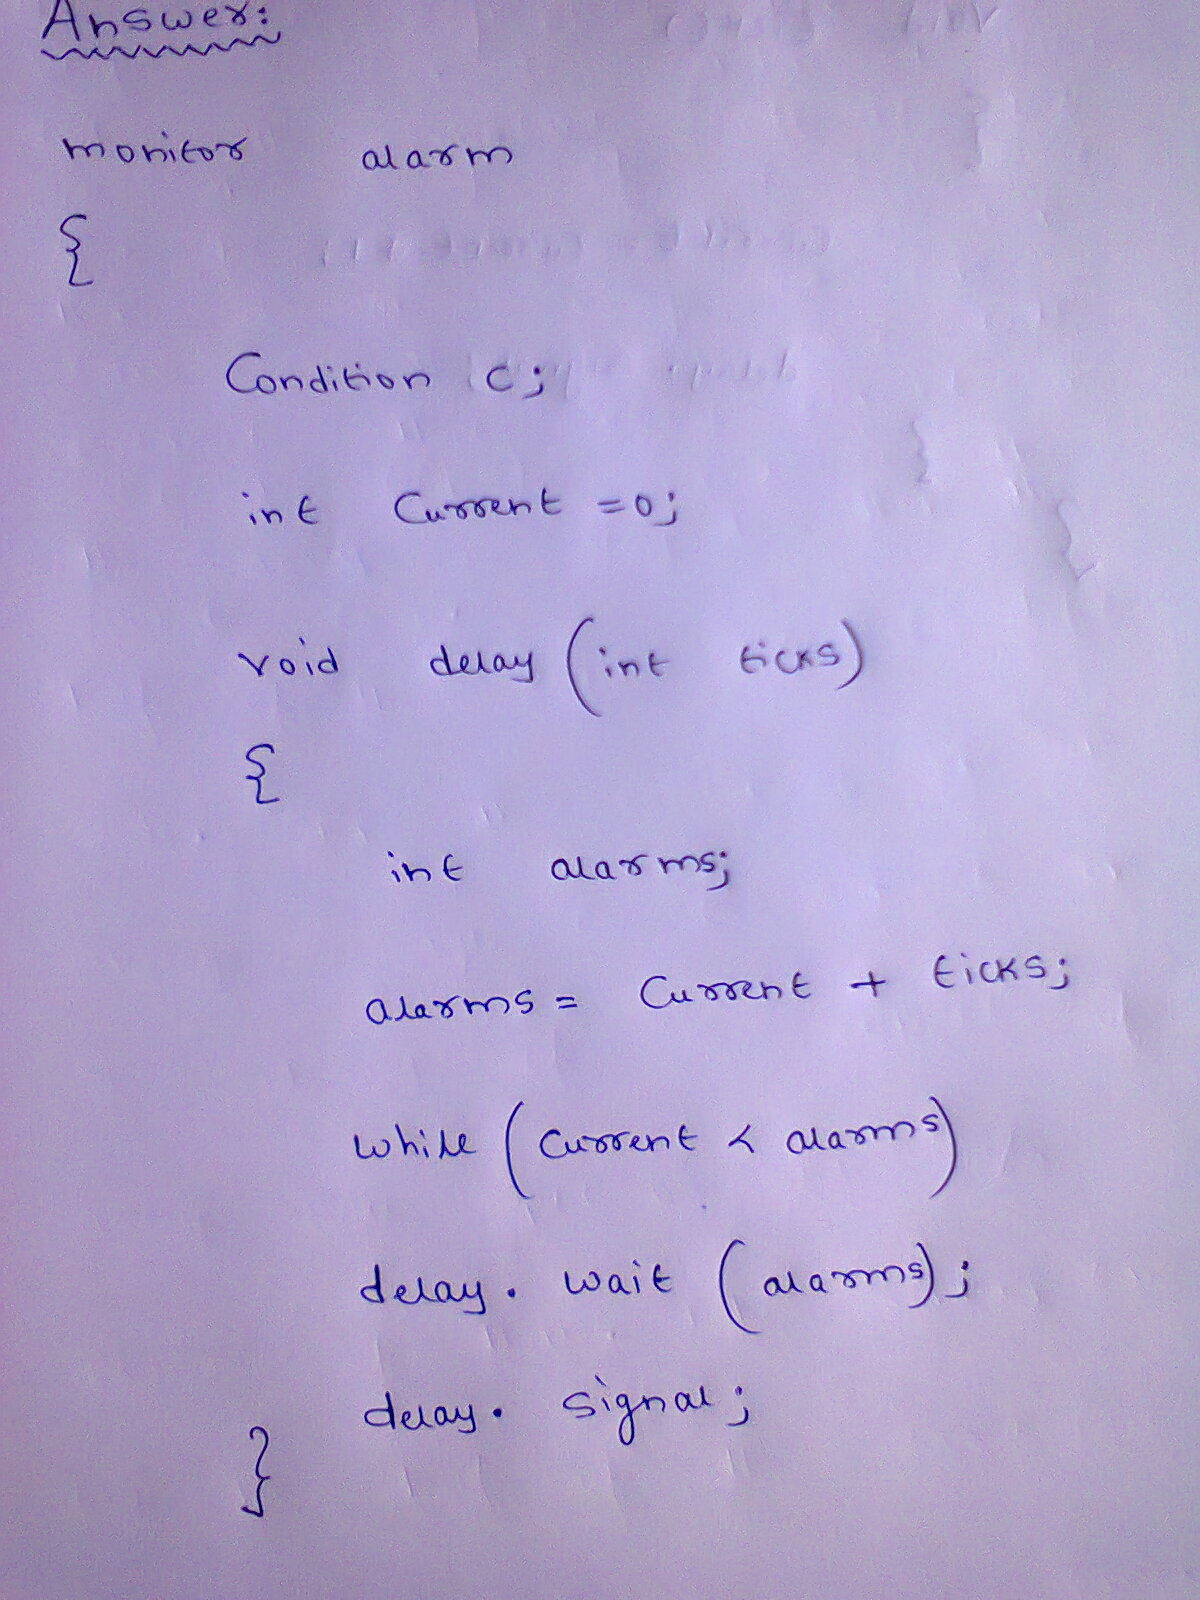 Answer:
monitor alarm
{
Condition c;
int Current =0;
void delay (int ticks)
{
int alarms;
alarms = Current + ticks;
while (Current < alarms)
delay. wait (alarms);
delay. signal;
}